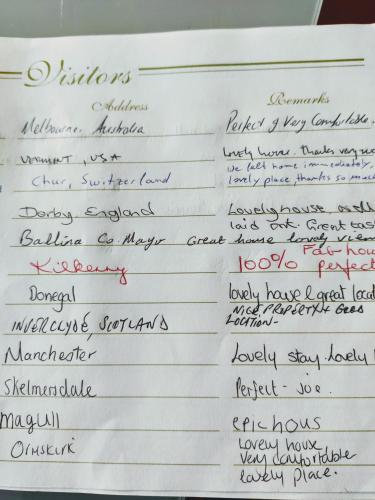 Visitors
Address Remarks
Melbourne, Australia Perfect & Very Comfortable.
Vermont, USA Lovely home. Thanks very
we felt home immediately,
Chur, Switzerland lovely place, thanks so much
Derby, England Lovely house well
laid out. Great
Ballina Co. Mayo Great house lovely view
Fab hou
Kilkenny 100% perfect
Donegal lovely house & great locat
NICE PROPERTY & GOOD
INVERCLYDE, SCOTLAND LOCATION-
Manchester Lovely stay. Lovely
Skelmersdale Perfect - joe.
Magull epic hous
Ormskirk Lovely house
very comfortable
lovely place.